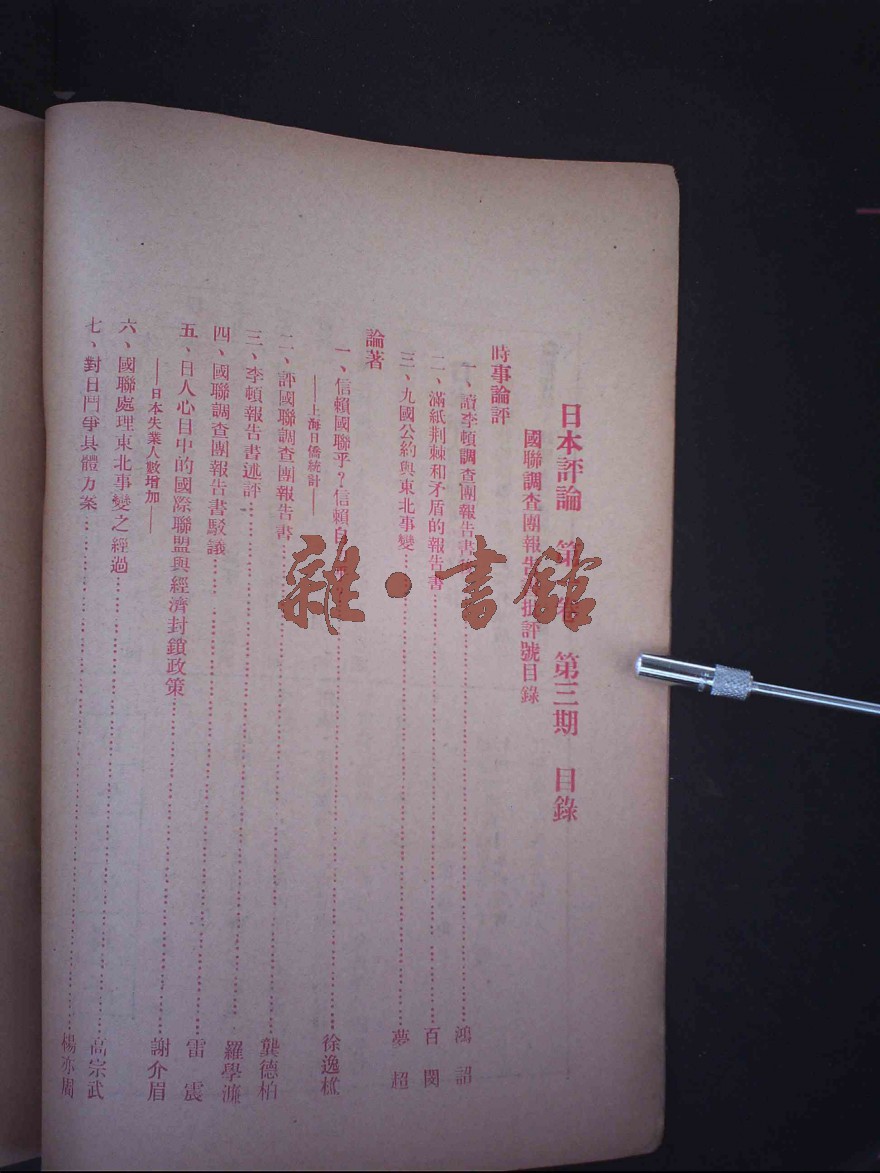 日本評論 第 卷 第三期 目錄
國聯調查團報告 批評號目錄
時事論評
一、讀李頓調查團報告書 鴻詔
二、滿紙荆棘和矛盾的報告書 百閔
三、九國公約與東北事變 夢超
論著
一、信賴國聯乎？信賴自 徐逸樵
——上海日僑統計——
二、評國聯調查團報告書 龔德柏
三、李頓報告書述評 羅學濂
四、國聯調查團報告書駁議 雷震
五、日人心目中的國際聯盟與經濟封鎖政策 謝介眉
——日本失業人數增加——
六、國聯處理東北事變之經過 高宗武
七、對日鬥爭具體方案 楊亦周
雜·書館